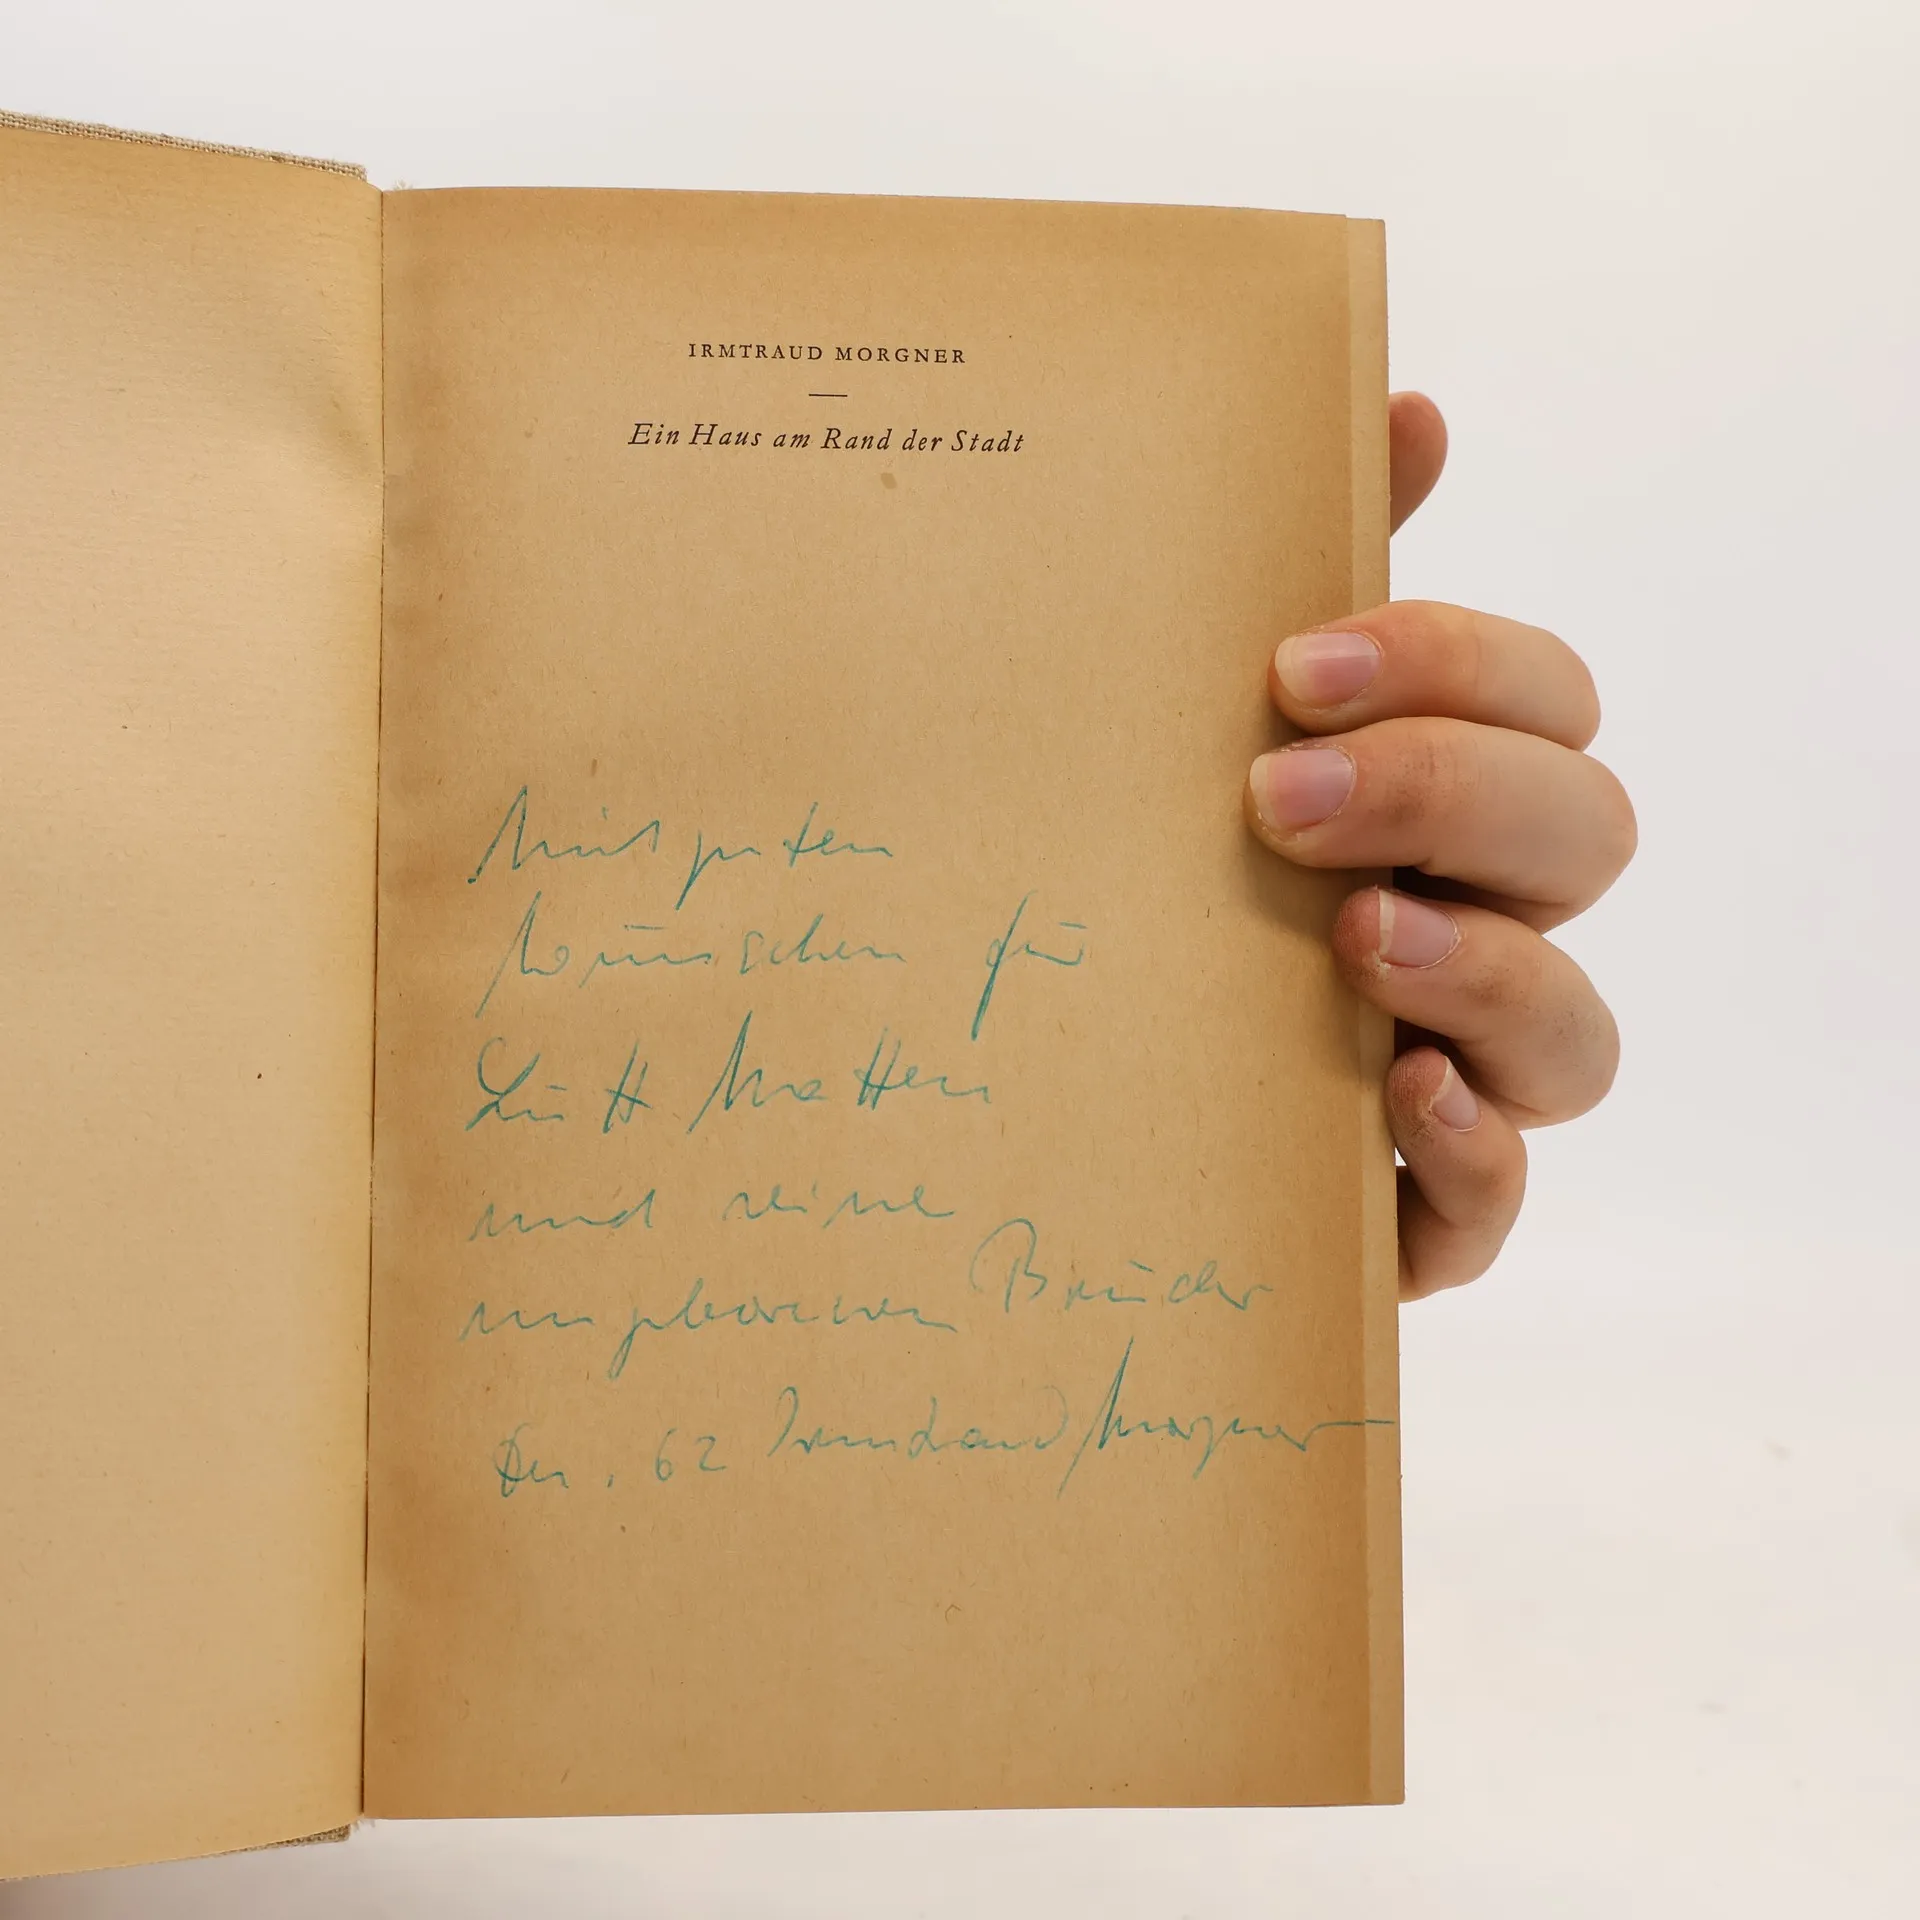 IRMTRAUD MORGNER
Ein Haus am Rand der Stadt
Mit guten
Wünschen für
Lütt Matten
und seine
ungeborenen Brüder
62 Irmtraud Morgner